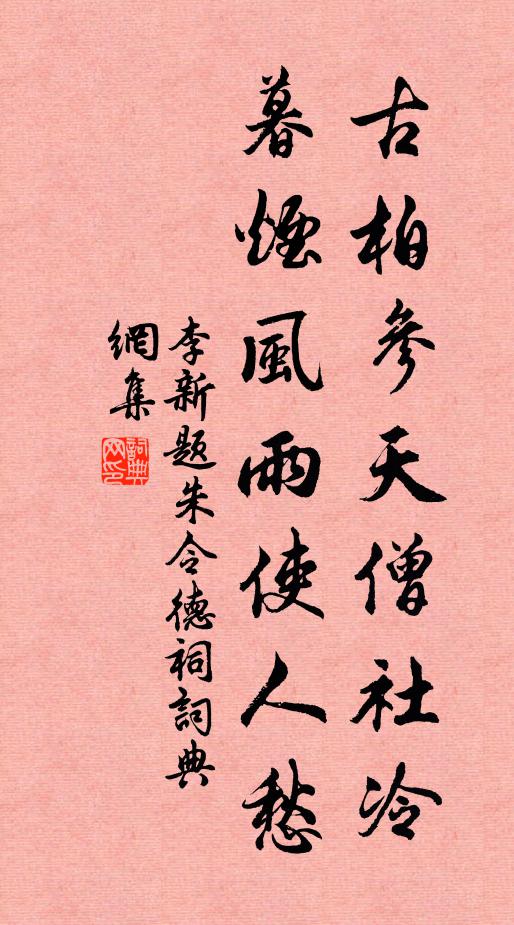 古柏參天僧社冷
暮煙風雨使人愁
李新題朱令德祠詞典
網集
詞典
网印